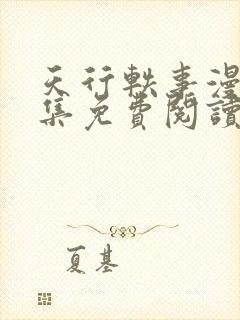 天行軼事漫
集免費閱讀
夏基